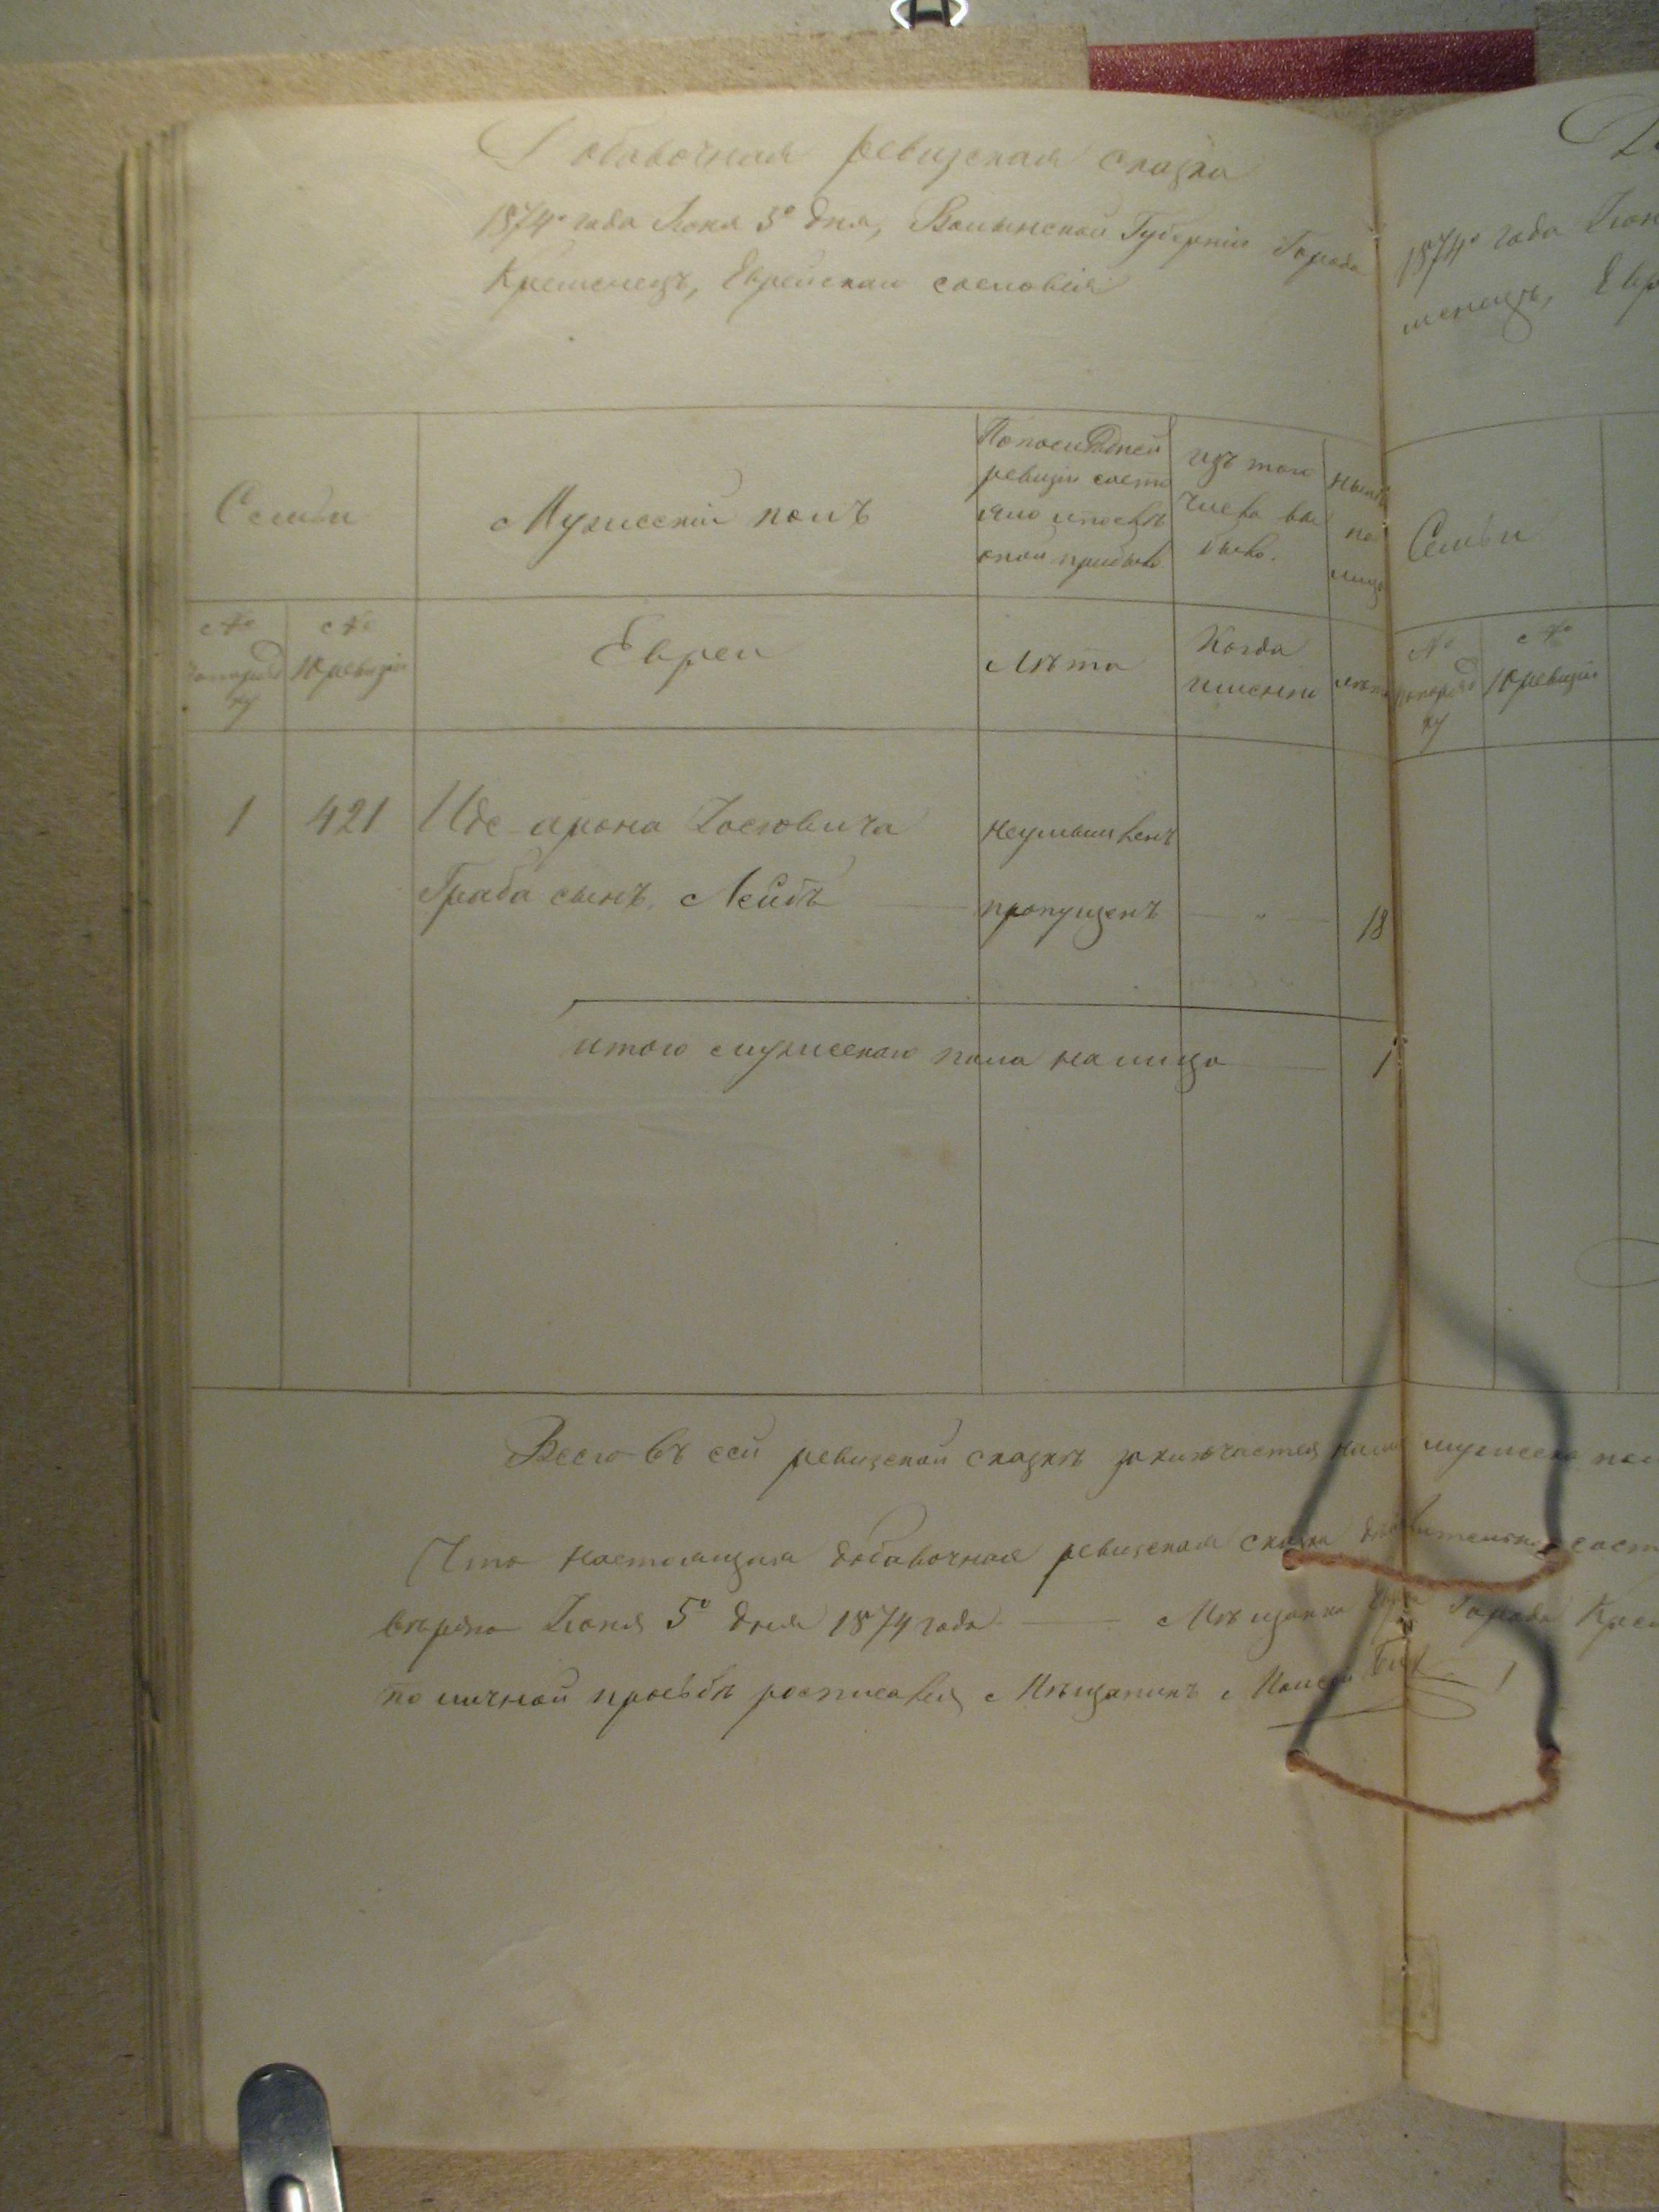 Добавочная ревизская сказка
1874го года Іюня 5го дня, Волынской Губерніи Города
Кременецъ, Еврейскаго сословія
Семьи
Мужескій полъ
По последней
ревизіи состо
яло и после
оной прибыло
изъ того
числа вы
было.
ныне
на
лицо
№
по поряд
ку
№
10 ревизіи
Евреи
Лѣта
Когда
именно
лѣта
1
421
Иде арона Іосіовича
Граба сынъ Лейбъ
пропущенъ
"
18
итого мужескаго пола на лицо
1
Всего въ сей ревизской сказкѣ заключается мужеска
Что настоящая добавочная ревизская сказка составлена
вѣрно Іюня 5го дня 1874 года Мѣщанка Города
по личной просьбѣ росписався Мѣщанинъ
1874го года
Семьи
№
по поряд
ку
№
10 ревизіи